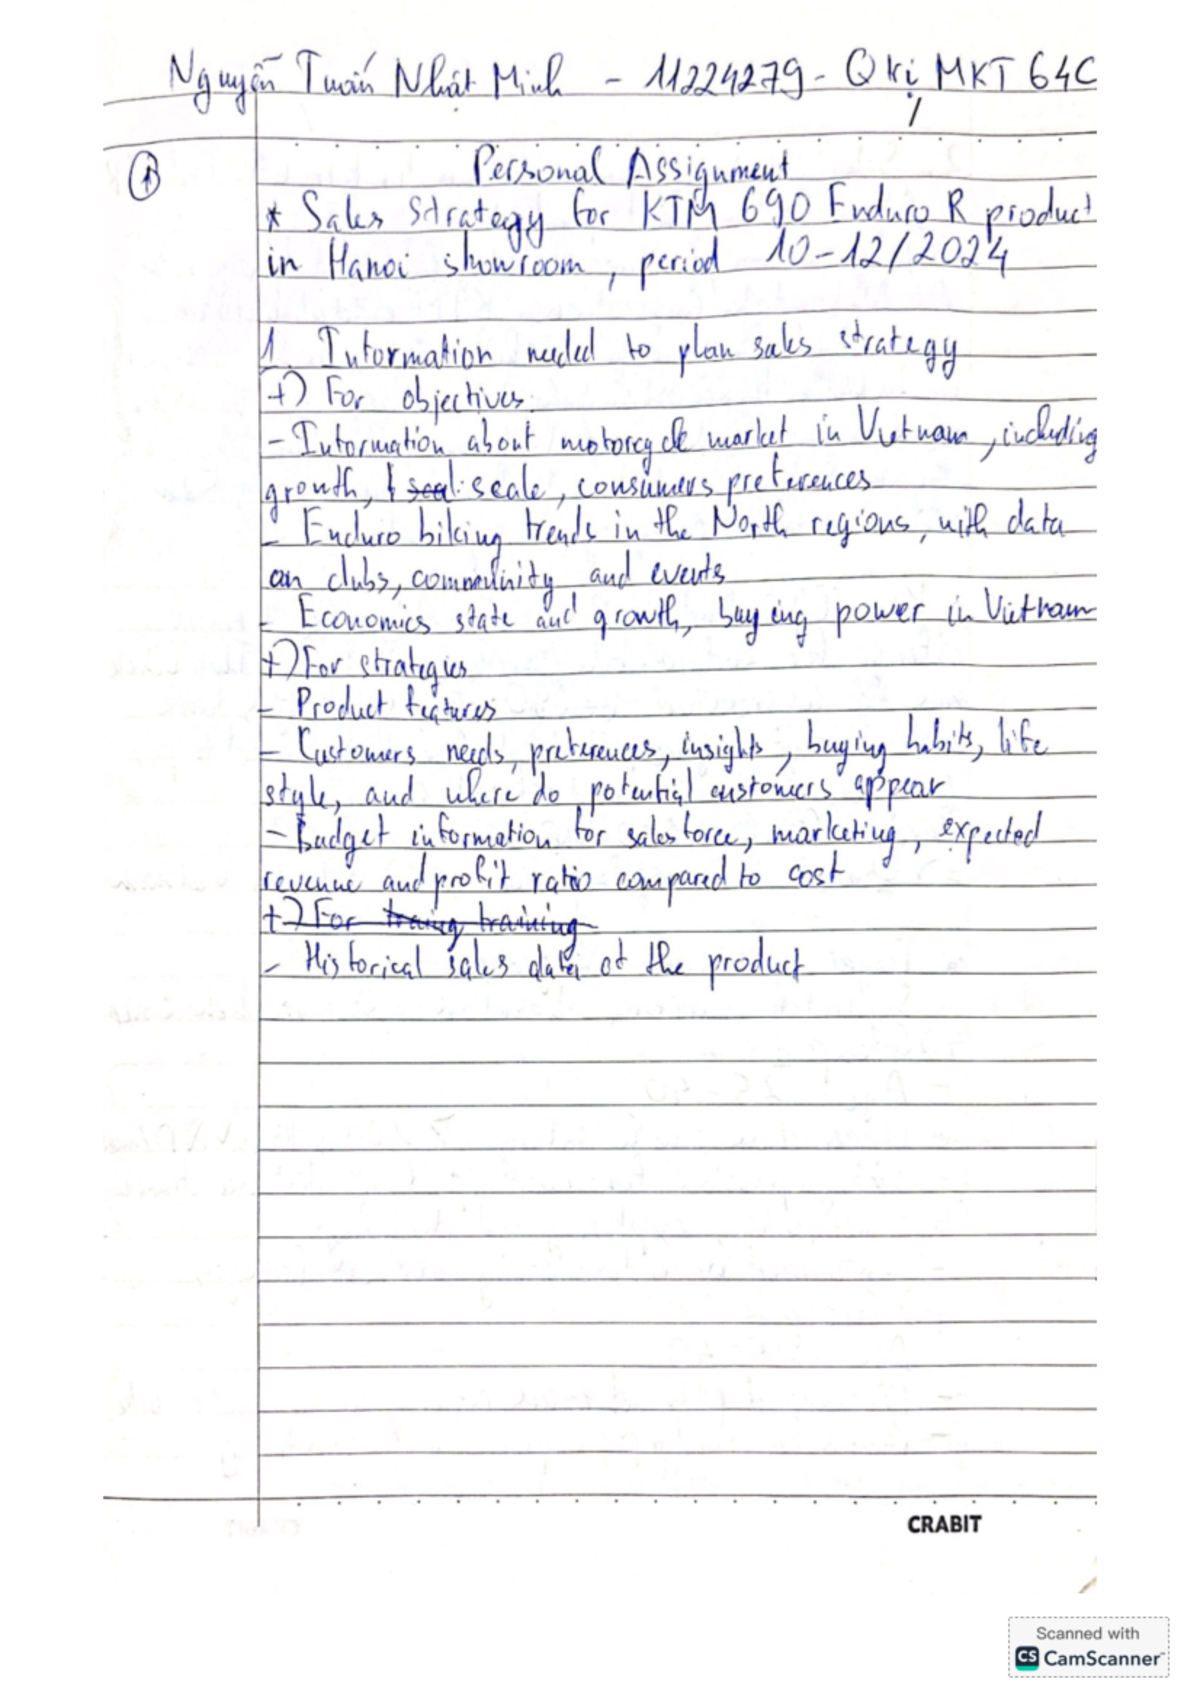 Nguyễn Tuấn Nhật Minh - 11224279 - Qtrị MKT 64C
1
Personal Assignment
* Sales strategy for KTM 690 Enduro R product
in Hanoi showroom, period 10-12/2024
1. Information needed to plan sales strategy
+) For objectives.
- Information about motorcycle market in Vietnam, including
growth, scal scale, consumers preferences
- Enduro biking trends in the North regions, with data
on clubs, community and events
- Economics state and growth, buying power in Vietnam
+) For strategies
- Product features
- Customers needs, preferences, insights, buying habits, life
style, and where do potential customers appear
- Budget information for salesforce, marketing, expected
revenue and profit ratio compared to cost
+) For traing training
- Historical sales data of the product
CRABIT
Scanned with
CS CamScanner